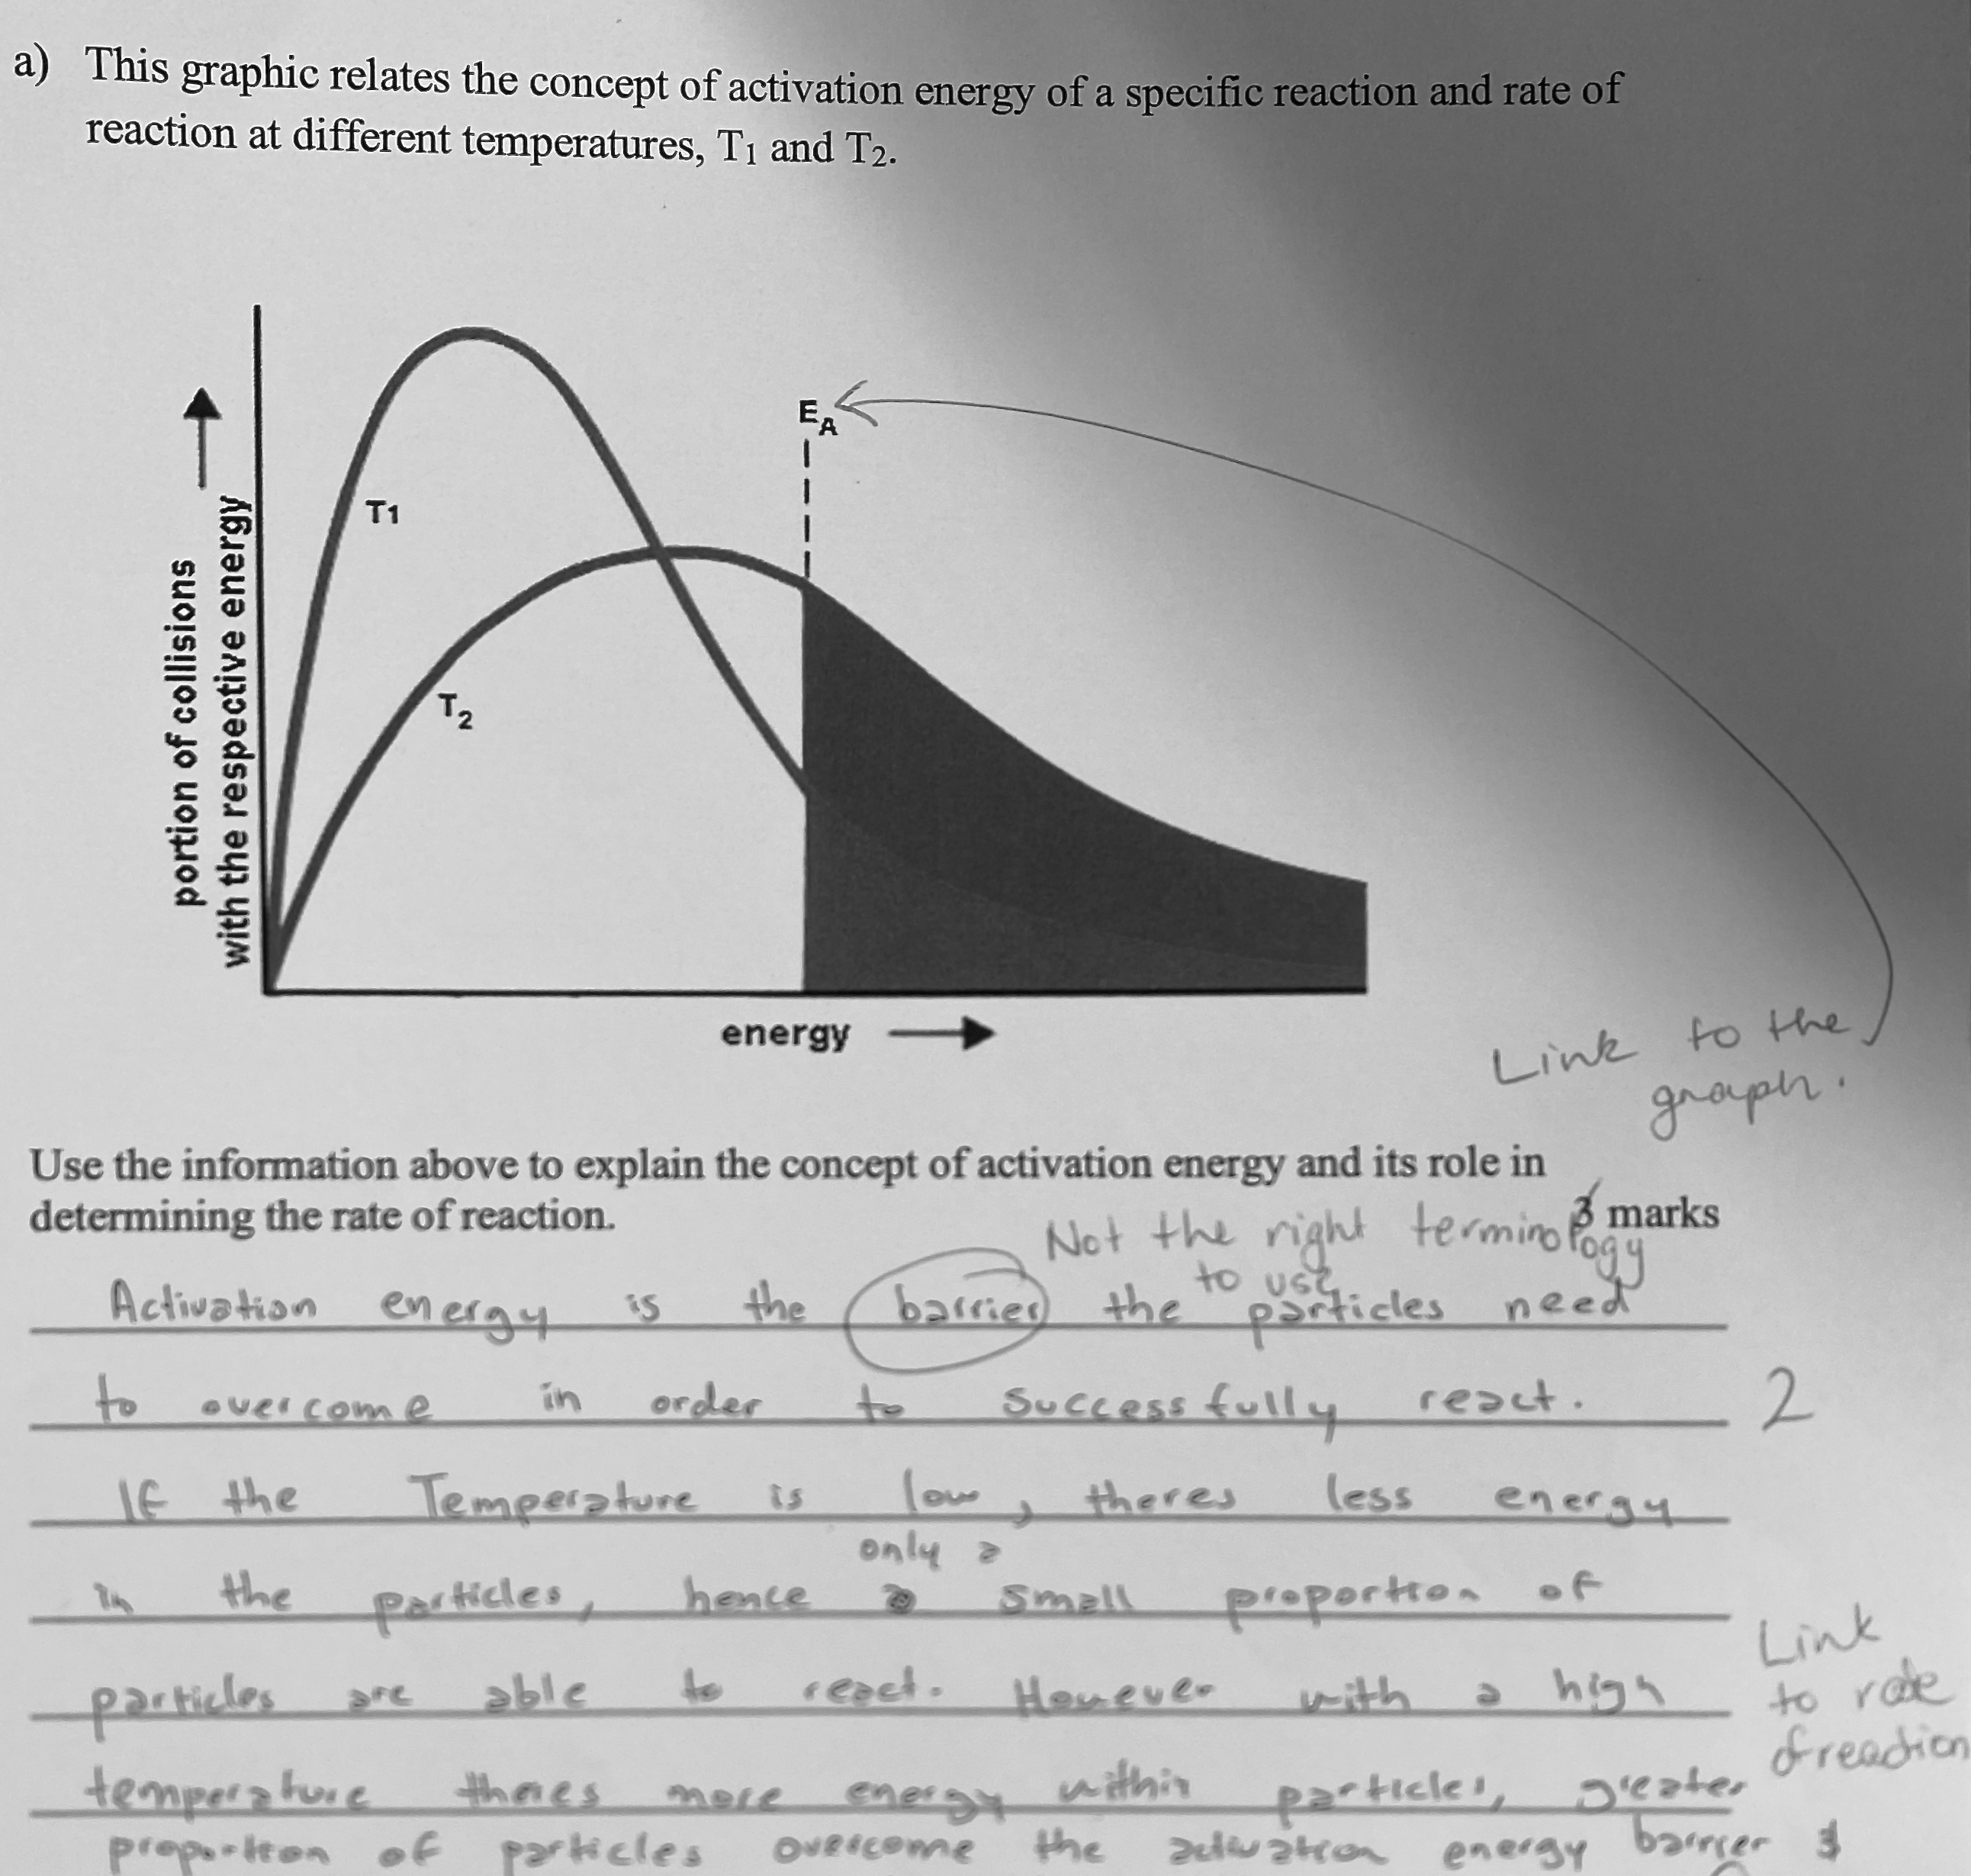 a) This graphic relates the concept of activation energy of a specific reaction and rate of
reaction at different temperatures, T1 and T2.
EA
T1
T2
portion of collisions
with the respective energy
energy
Link to the
graph.
Use the information above to explain the concept of activation energy and its role in
determining the rate of reaction.
3 marks
Not the right terminology
to use
Activation energy is the barrier the particles need
to overcome in order to successfully react.
2
If the Temperature is low, theres less energy
only a
in the particles, hence small proportion of
particles are able to react. However with a high
Link
to rate
of reaction
temperature theres more energy within particles, greater
proportion of particles overcome the activation energy barrier